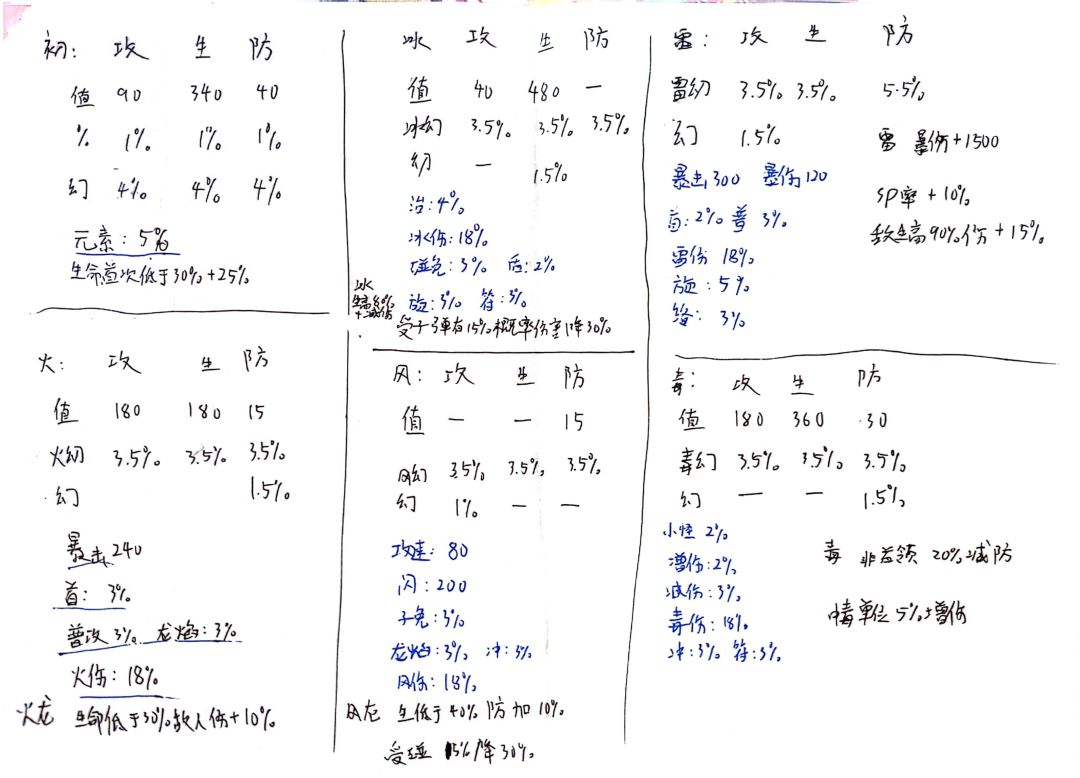 初： 攻 生 防
值 90 340 40
% 1% 1% 1%
幻 4% 4% 4%
元素：5%
生命首次低于30%+25%
冰 攻 生 防
值 40 480 —
冰幻 3.5% 3.5% 3.5%
幻 — 1.5%
治：4%
冰伤：18%
碰免：3% 后：2%
旋：3% 符：3%
冰
+减伤
受子弹有15%概率伤害降30%
雷： 攻 生 防
雷幻 3.5% 3.5% 5.5%
幻 1.5%
雷 暴伤+1500
暴击300 暴伤120
SP率+10%
首：2% 普 3%
敌生高90%伤+15%
雷伤 18%
旋：5%
终：3%
火： 攻 生 防
值 180 180 15
火幻 3.5% 3.5% 3.5%
幻 1.5%
暴击240
首：3%
普攻3% 龙焰：3%
火伤：18%
火龙 生命低于30%敌人伤+10%
风： 攻 生 防
值 — — 15
风幻 3.5% 3.5% 3.5%
幻 1% — —
攻速：80
闪：200
子免：3%
龙焰：3% 冲：3%
风伤：18%
风龙 生低于40%防加10%
受碰 15%降30%
毒： 攻 生 防
值 180 360 30
毒幻 3.5% 3.5% 3.5%
幻 — — 1.5%
小怪 2%
增伤：2%
减伤：3%
毒伤：18%
冲：3% 符：3%
毒 非首领 20%减防
中毒单位5%增伤